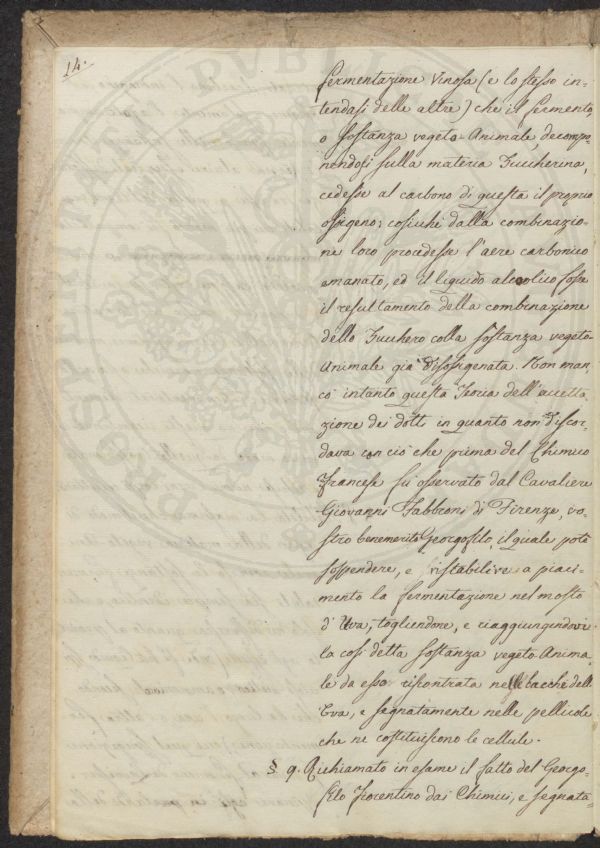 14.
fermentazione Vinosa (e lo stesso in=
tendasi delle altre) che il fermento,
o Sostanza vegeto-Animale, decompo=
nendosi sulla materia Zuccherina,
cedesse al carbono di questa il proprio
ossigeno; cosicchè dalla combinazio=
ne loro procedesse l'aere carbonico
emanato, ed il liquido alcolico fosse
il resultamento della combinazione
dello Zucchero colla Sostanza vegeto=
Animale già disossigenata. Non man=
cò intanto questa Teoria dell'accetta=
zione dei dotti in quanto non discor=
dava con ciò che prima del Chimico
Francese fu osservato dal Cavaliere
Giovanni Fabbroni di Firenze, vo=
stro benemerito Georgofilo, il quale potè
sospendere, e ristabilire a piaci=
mento la fermentazione nel mosto
d'Uva, togliendone, e riaggiungendovi
la così detta Sostanza vegeto-Anima=
le da esso riscontrata nelle bacche dell'
Uva, e segnatamente nelle pellicole
che ne costituiscono le cellule.
§. 9. Richiamato in esame il fatto del Georgo=
filo Fiorentino dai Chimici, e segnata=